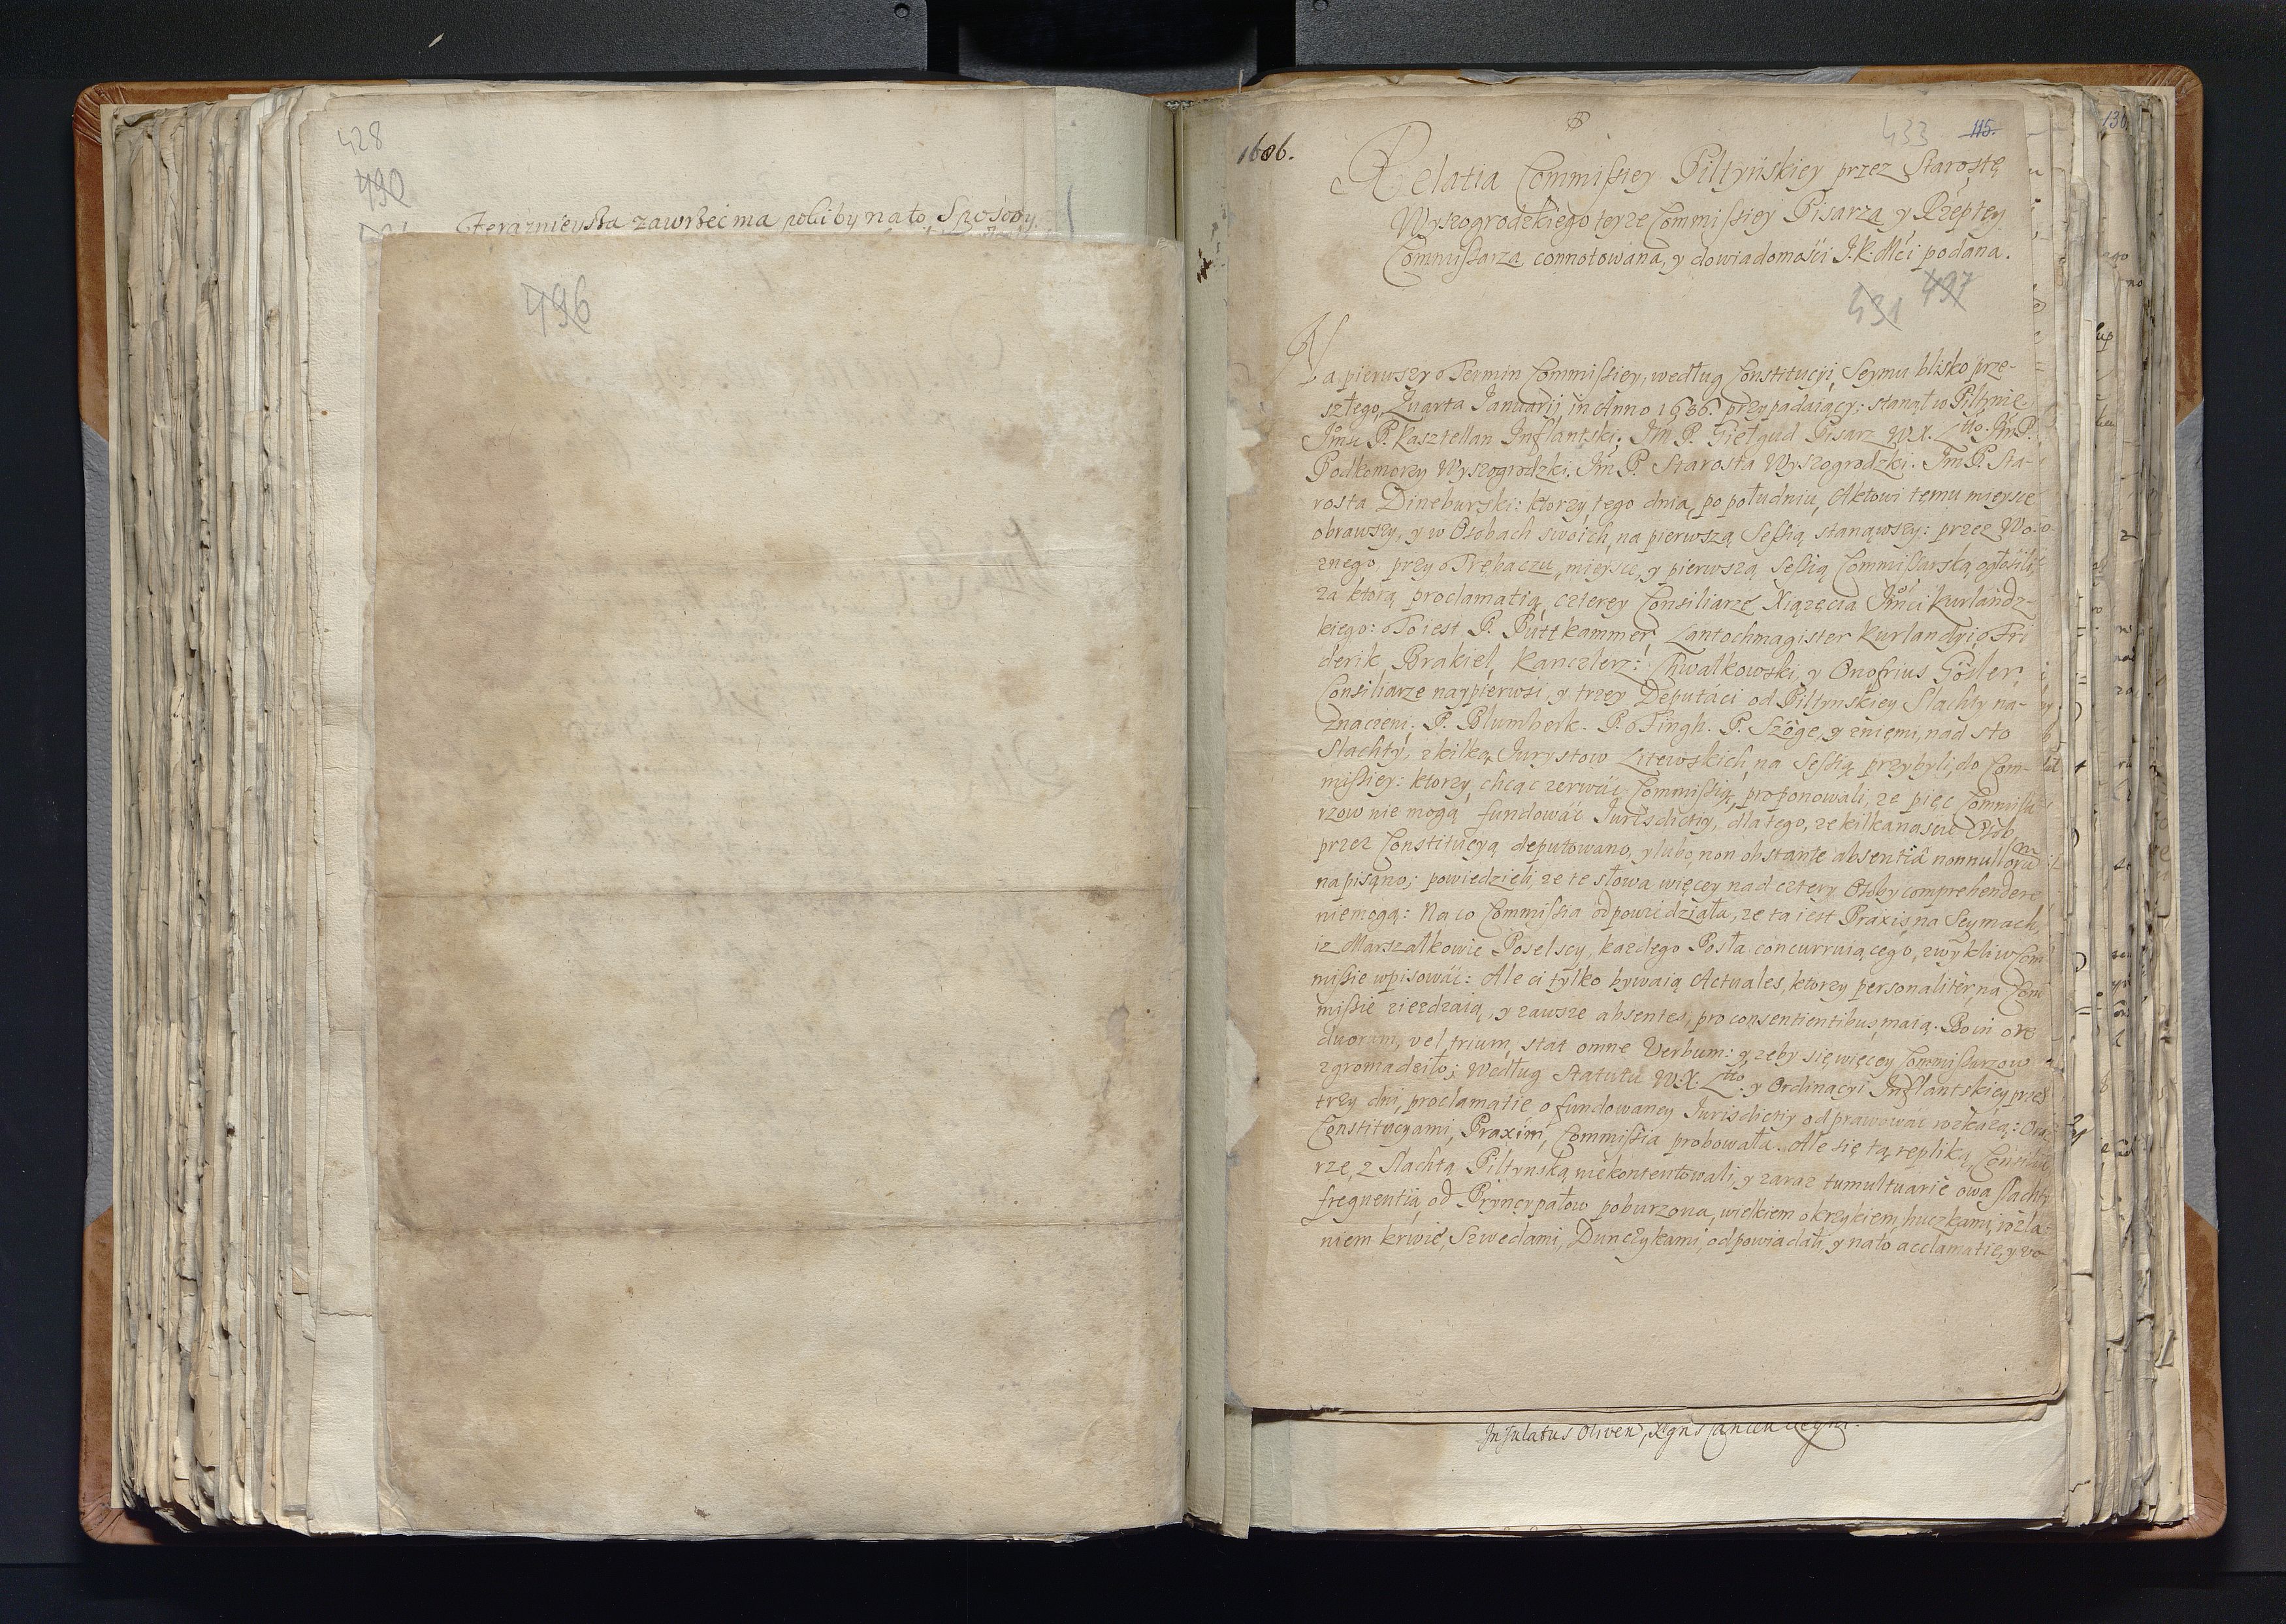 428
490
Teraznieysza zawrzeć ma poki by na to Sposoby
496
1686.
433
115.
130.
Relatia Commissiey Piltyńskiey przez Starostę
Wyszogrodzkiego teyze Commissiey Pisarza y Rzeptey
Commissarza connotowana, y do wiadomości J.K.Mći podana.
431 497
Na pierwszy Termin Commissiey, według Constitucyi, Seymu blisko prze-
szłego, Quarta Januarij, in Anno 1636. przypadaiący: stanął w Piltynie
Jmć P. Kasztellan Inflantski. Jm P. Giełgud Pisarz W.X. Ltto. Jm P.
Podkomorzy Wyszogrodzki. Jm P. Starosta Wyszogrodzki. Jm P. Sta-
rosta Dineburski: ktorzy, tego dnia, po południu, Aktowi temu mieysce
obrawszy, y w Osobach swoich, na pierwszą Sessią stanąwszy: przez Wo-
znego, przy Trębaczu, mieysce, y pierwszą Sessią Commissarską ogłosili,
za ktorą proclamatią, czterey Consiliarze Xiążęcia Jmći Kurlandz-
kiego: To iest P. Puttkammer Lantochmagister Kurlandyi, Fri
derik Brakiel, Kanclerz: Chwałkowski, y Onofrius Göller,
Consiliarze naypierwsi, y trzey Deputaci od Piltynskiey Slachty na-
znaczeni, P. Blumberk. P. Tingh. P. Szöge, y zniemi, nad sto
Slachty, z kilką Jurystow Litewskich, na Sessią przybyli, do Com-
missiey: ktorzy, chcąc zerwać Commissią, proponowali, ze pięć Commissa-
rzow nie mogą fundować Jurisdictiy, dla tego, ze kilkanaście Osob,
przez Constitucyą deputowano, y lubo, non obstante absentiâ nonnullorum
napisano; powiedzieli, ze te słowa, więcey nad cztery Osoby comprehendere
niemogą: Na co Commissia odpowiedziała, ze ta iest Praxis, na Seymach,
iz Marszałkowie Poselscy, kazdego Posła concurruiącego, zwykli w Com-
missie wpisować: Ale ci tylko bywaią Actuales, ktorzy personaliter, na Com-
missie ziezdzaią, y zawsze absentes, pro consentientibus, maią. Bo in ore
duorum, vel trium, stat omne Verbum: y, zeby się więcey Commissarzow
zgromadziło; Według Statutu W.X. Ltto, y Ordinacyi Inflantskiey przez
trzy dni, proclamatie, o fundowaney Jurisdictiy odprawować rozkażą: Oraz
Constitucyami, Praxim, Commissia probowała. Ale się tą repliką, Consilia-
rze, z Slachtą Piltynską niekontentowali, y zaraz tumultuariè owa slachty
frequentia, od Pryncypałow poburzona, wielkiem okrzykiem, huczkami, rozla-
niem krwie, Szwedami, Dunczykami, odpowiadali, y na to acclamatie, y vo-
Insulatus Oliven,